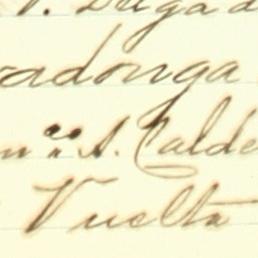 V. Briga d
adonga
mª S. Calde
Vuelta